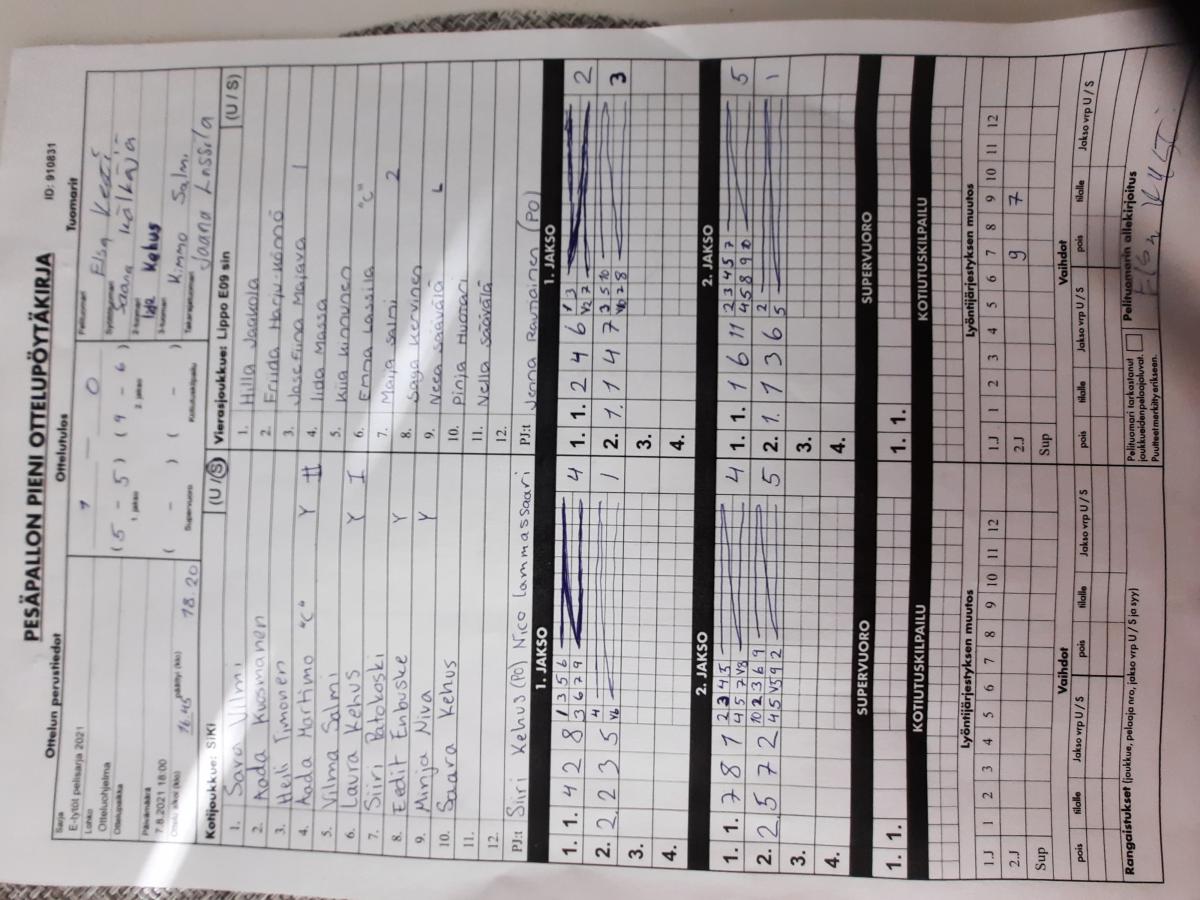 PESÄPALLON PIENI OTTELUPÖYTÄKIRJA
ID: 910831
Ottelun perustiedot
Ottelutulos
Tuomarit
Sarja
E-tytöt pelisarja 2021
Lohko
Otteluohjelma
Ottelupaikka
Päivämäärä
7.8.2021 18:00
Ottelu alkoi (klo) 16.45 päättyi (klo) 18.20
1 — 0
(5 - 5) (9 - 6)
1. jakso 2. jakso
( - ) ( - )
Supervuoro Kotiutuskilpailu
Pelituomari
Syöttötuomari Saana Kälkäjä
2-tuomari Kehus
3-tuomari Kimmo Salmi
Takarajatuomari Jaana Lassila
Kotijoukkue: SiKi (U / S)
1. Sara Vilmi
2. Aada Kuosmanen
3. Heili Timonen
4. Aada Martimo "C" Y
5. Vilma Salmi
6. Laura Kehus Y I
7. Siiri Patokoski
8. Eedit Enbuske Y
9. Minja Niva Y
10. Saara Kehus
11.
12.
PJ:t Siiri Kehus (PO) Nico Lammassaari
Vierasjoukkue: Lippo E09 sin (U / S)
1. Hilla Jaakola
2. Friida Harju-Könnö
3. Josefiina Majava 1
4. Iida Massa
5. Kiia Kinnunen
6. Emma Lassila "C"
7. Maija Salmi 2
8. Saga Kervinen
9. Neea Säävälä L
10. Pinja Huotari
11. Nella Säävälä
12.
PJ:t Jenna Rautiainen (PO)
1. JAKSO
1. 1. 4 2 8 1 3 5 6 4
3 6 7 9
2. 2. 2 3 5 4 1
V6
3.
4.
1. JAKSO
1. 1. 2 4 6 1 3 2
V2 7
2. 1. 1 4 7 3 5 10 3
V6 7 8
3.
4.
2. JAKSO
1. 1. 7 8 1 2 3 4 5 4
4 5 7 V8
2. 2. 5 7 2 10 2 3 6 9 5
4 5 V5 9 2
3.
4.
2. JAKSO
1. 1. 1 6 11 2 3 4 5 7 5
4 5 8 9 10
2. 1. 1 3 6 2 1
5
3.
4.
SUPERVUORO
1. 1.
SUPERVUORO
1. 1.
KOTIUTUSKILPAILU
KOTIUTUSKILPAILU
Lyöntijärjestyksen muutos
1.J 1 2 3 4 5 6 7 8 9 10 11 12
2.J
Sup
Lyöntijärjestyksen muutos
1.J 1 2 3 4 5 6 7 8 9 10 11 12
2.J 9 7
Sup
Vaihdot
pois tilalle Jakso vrp U / S pois tilalle Jakso vrp U / S
Vaihdot
pois tilalle Jakso vrp U / S pois tilalle Jakso vrp U / S
Rangaistukset (joukkue, pelaaja nro, jakso vrp U / S ja syy)
Pelituomari tarkastanut
joukkueidenpelaajaluvat.
Puutteet merkitty erikseen.
Pelituomarin allekirjoitus